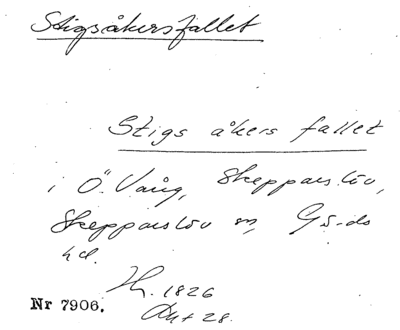 Stigsåkersfallet
Stigs åkers fallet
i Ö. Vång, Skepparslöv,
Skepparslöv sn, Gä-ds
hd.
H. 1826
Akt 28.
Nr 7906.